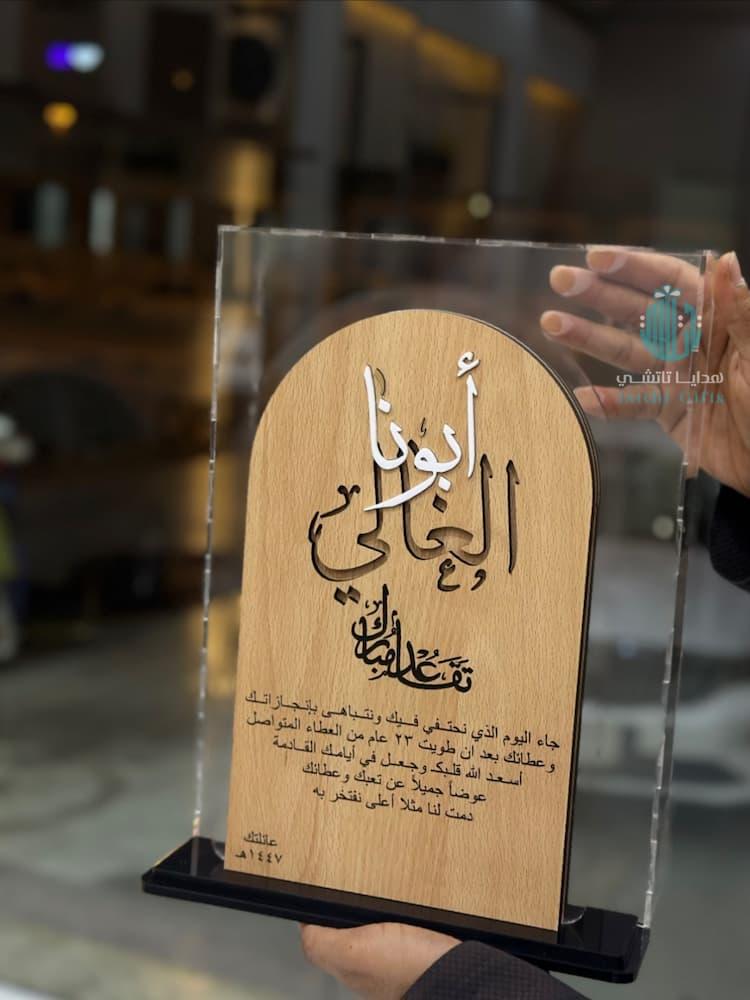 هدايا تاتشي
Tatchi Gifts
أبونا
الغالي
تقاعد مبارك
جاء اليوم الذي نحتفي فيك ونتباهى بإنجازاتك
وعطائك بعد ان طويت ٢٣ عام من العطاء المتواصل
أسعد الله قلبك وجعل في أيامك القادمة
عوضاً جميلاً عن تعبك وعطائك
دمت لنا مثلا أعلى نفتخر به
عائلتك
١٤٤٧هـ